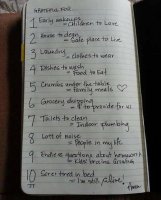 GRATEFUL FOR
1 Early wakeups
= Children to Love
2 House to clean
= Safe place to Live
3 Laundry
= Clothes to wear
4 Dishes to wash
= Food to Eat
5 Crumbs under the table
= Family meals
6 Grocery shopping
= $ to provide for us
7 Toilets to clean
= Indoor plumbing
8 Lots of noise
= People in my life
9 Endless questions about homework
= Kids brains growing
10 Sore & tired in bed
= I'm still alive!